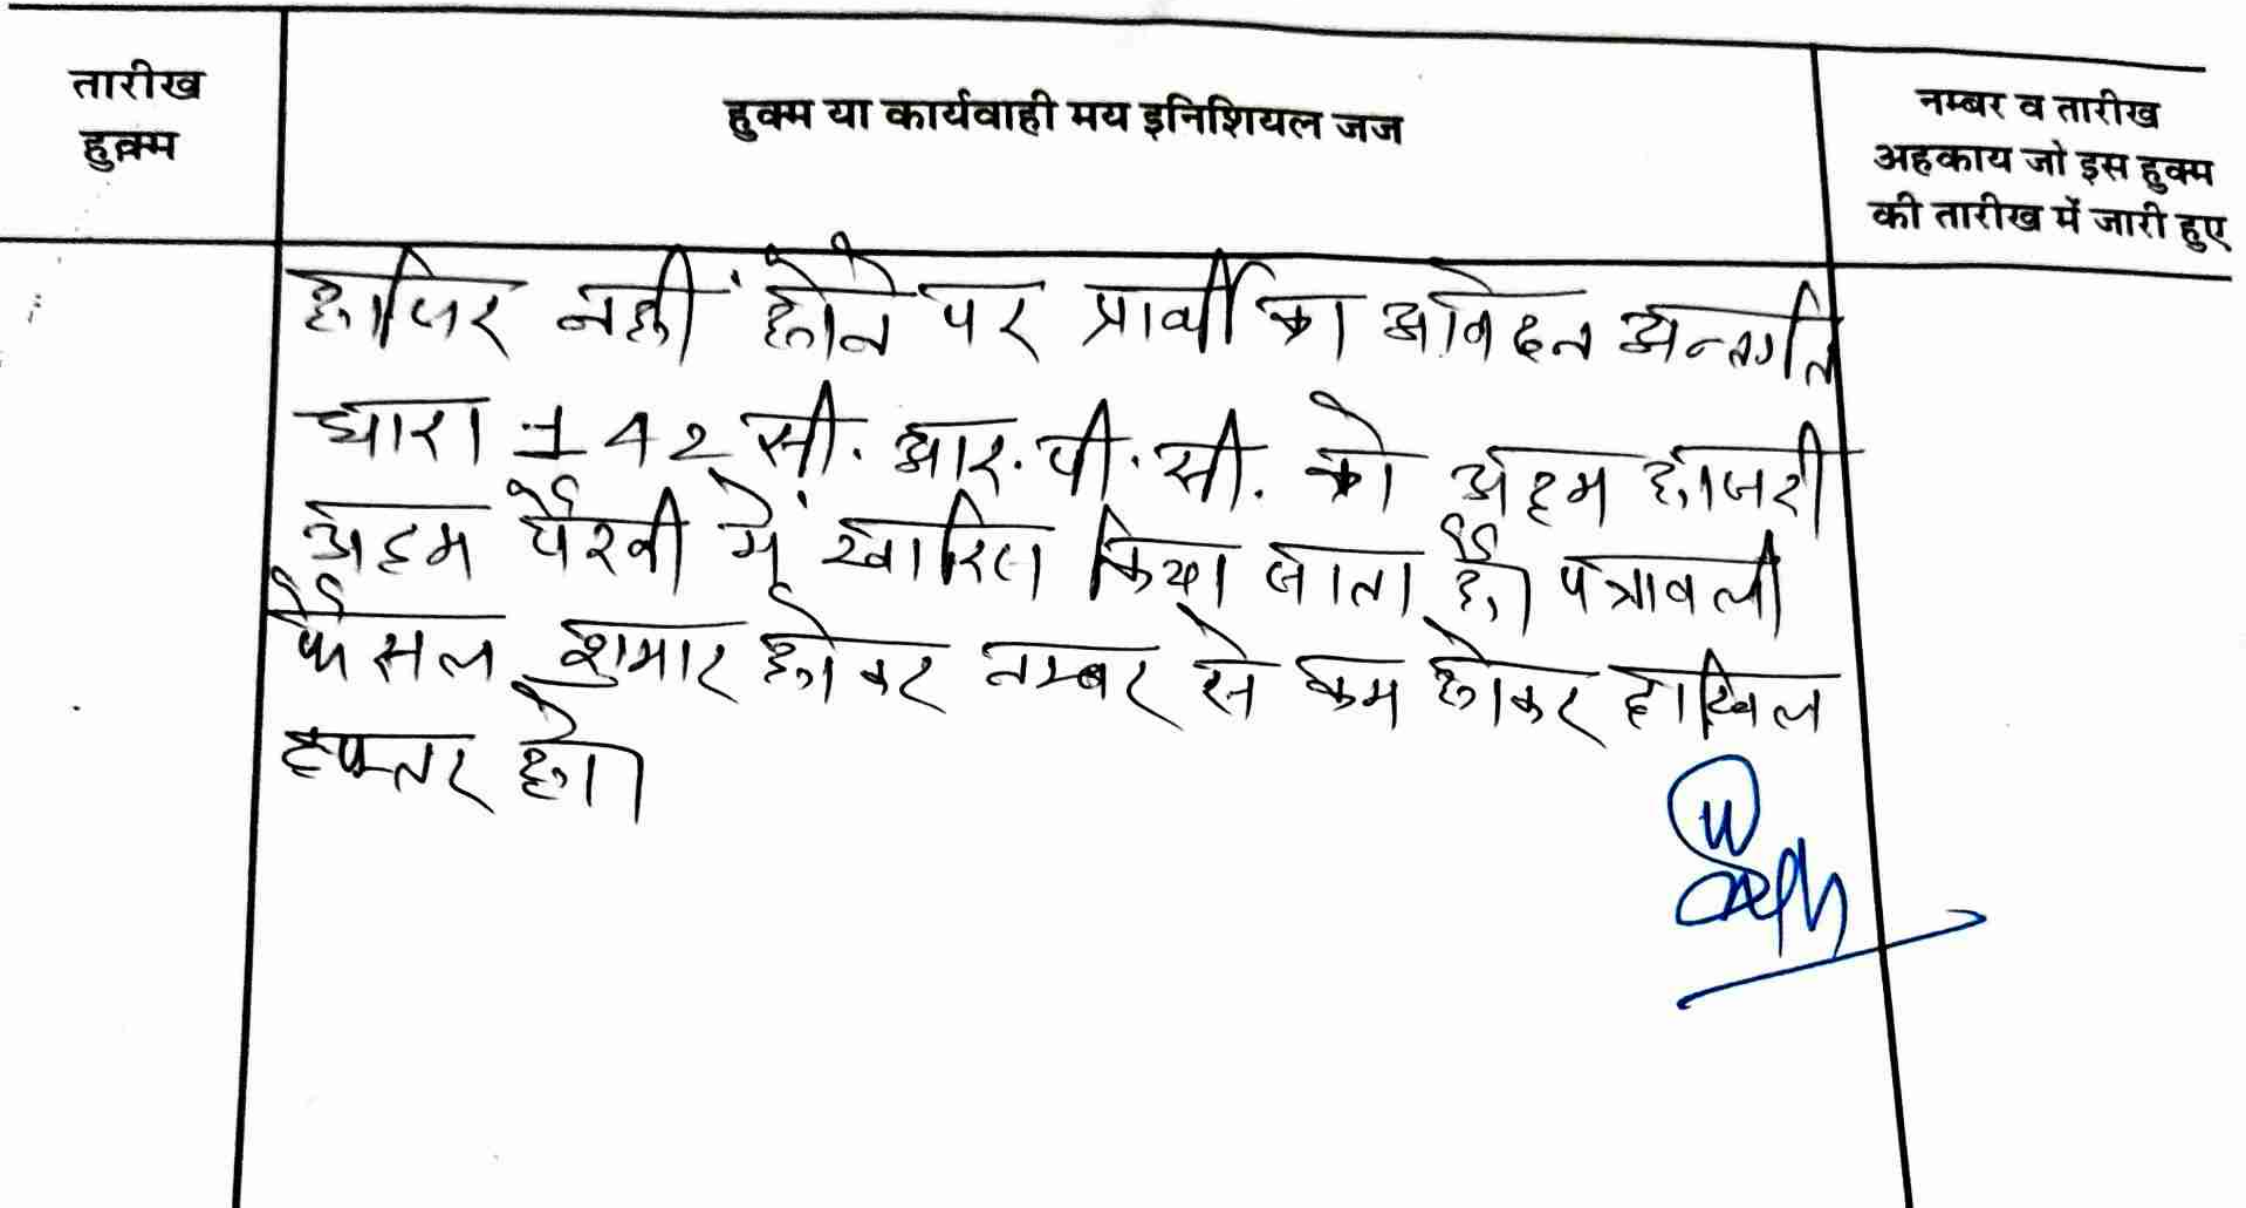 तारीख
हुक्म
हुक्म या कार्यवाही मय इनिशियल जज
नम्बर व तारीख
अहकाय जो इस हुक्म
की तारीख में जारी हुए
हाजिर नहीं होने पर प्रार्थी का आवेदन अन्तर्गत
धारा 142 सी. आर. पी. सी. को अदम हाजरी
अदम पैरवी में खारिज किया जाता है। पत्रावली
फैसल शुमार होकर नम्बर से कम होकर दाखिल
दफ्तर हो।